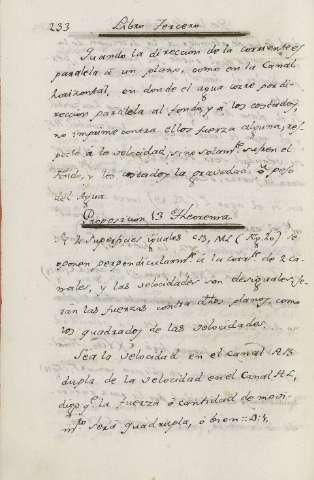 233 Libro Tercero
Quando la direccion de la corriente es
paralela á un plano, como en la Canal
horizontal, en donde el agua corre por di-
reccion paralela al fondo, y á los costados,
no imprime contra ellos fuerza alguna, res-
pecto á la velocidad, sino solamte sufren el
fondo, y los costados la gravedad ú peso
del Agua.
Proposicion 13 Theorema
Si 2 superficies iguales CB, ML (Fig. 20) se
oponen perpendicularmte á la corrte de 2 ca-
nales, y las velocidades son desiguales, se-
rán las fuerzas contra dhos planos, como
los quadrados de las velocidades.
Sea la velocidad en el canal AB
dupla de la velocidad en el Canal HL,
digo q.e la fuerza ó cantidad de movi-
m.to será quadrupla, ó bien